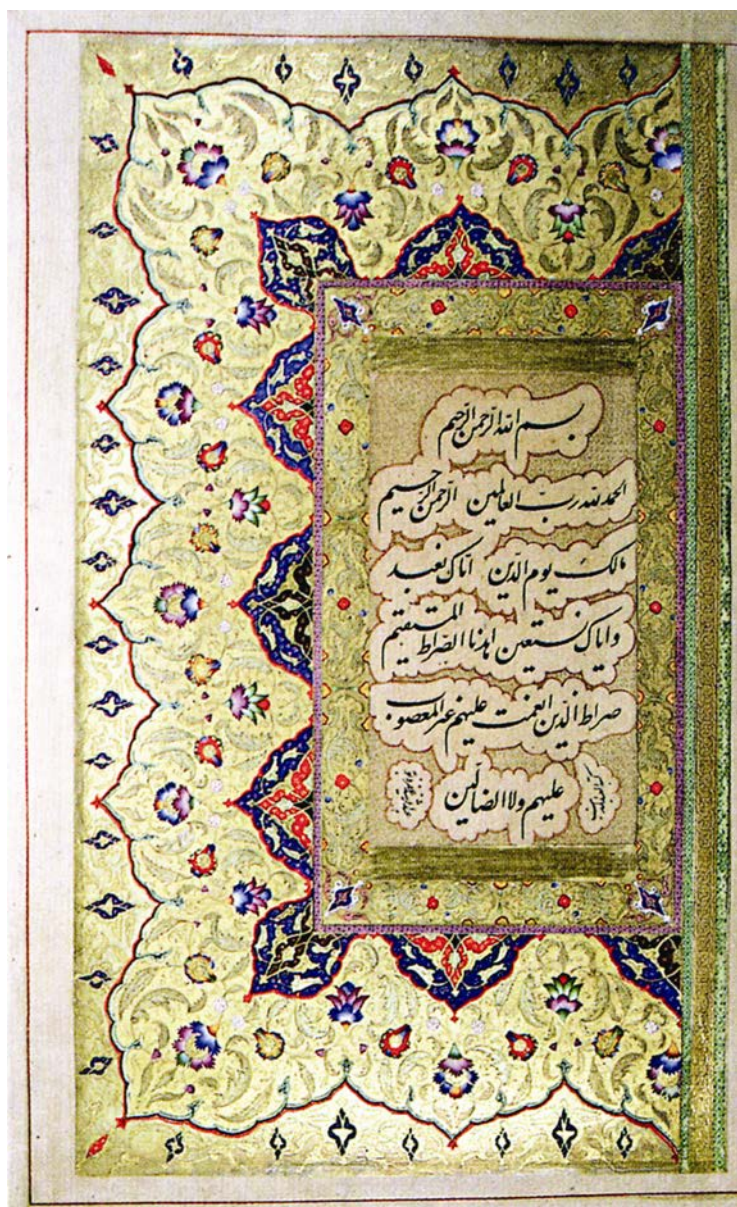 بسم الله الرّحمن الرّحيم
الحمد لله ربّ العالمين الرّحمن الرّحيم
مالك يوم الدّين اياك نعبد
و اياك نستعين اهدنا الصّراط المستقيم
صراط الّذين انعمت عليهم غير المغضوب
عليهم ولا الضالّين